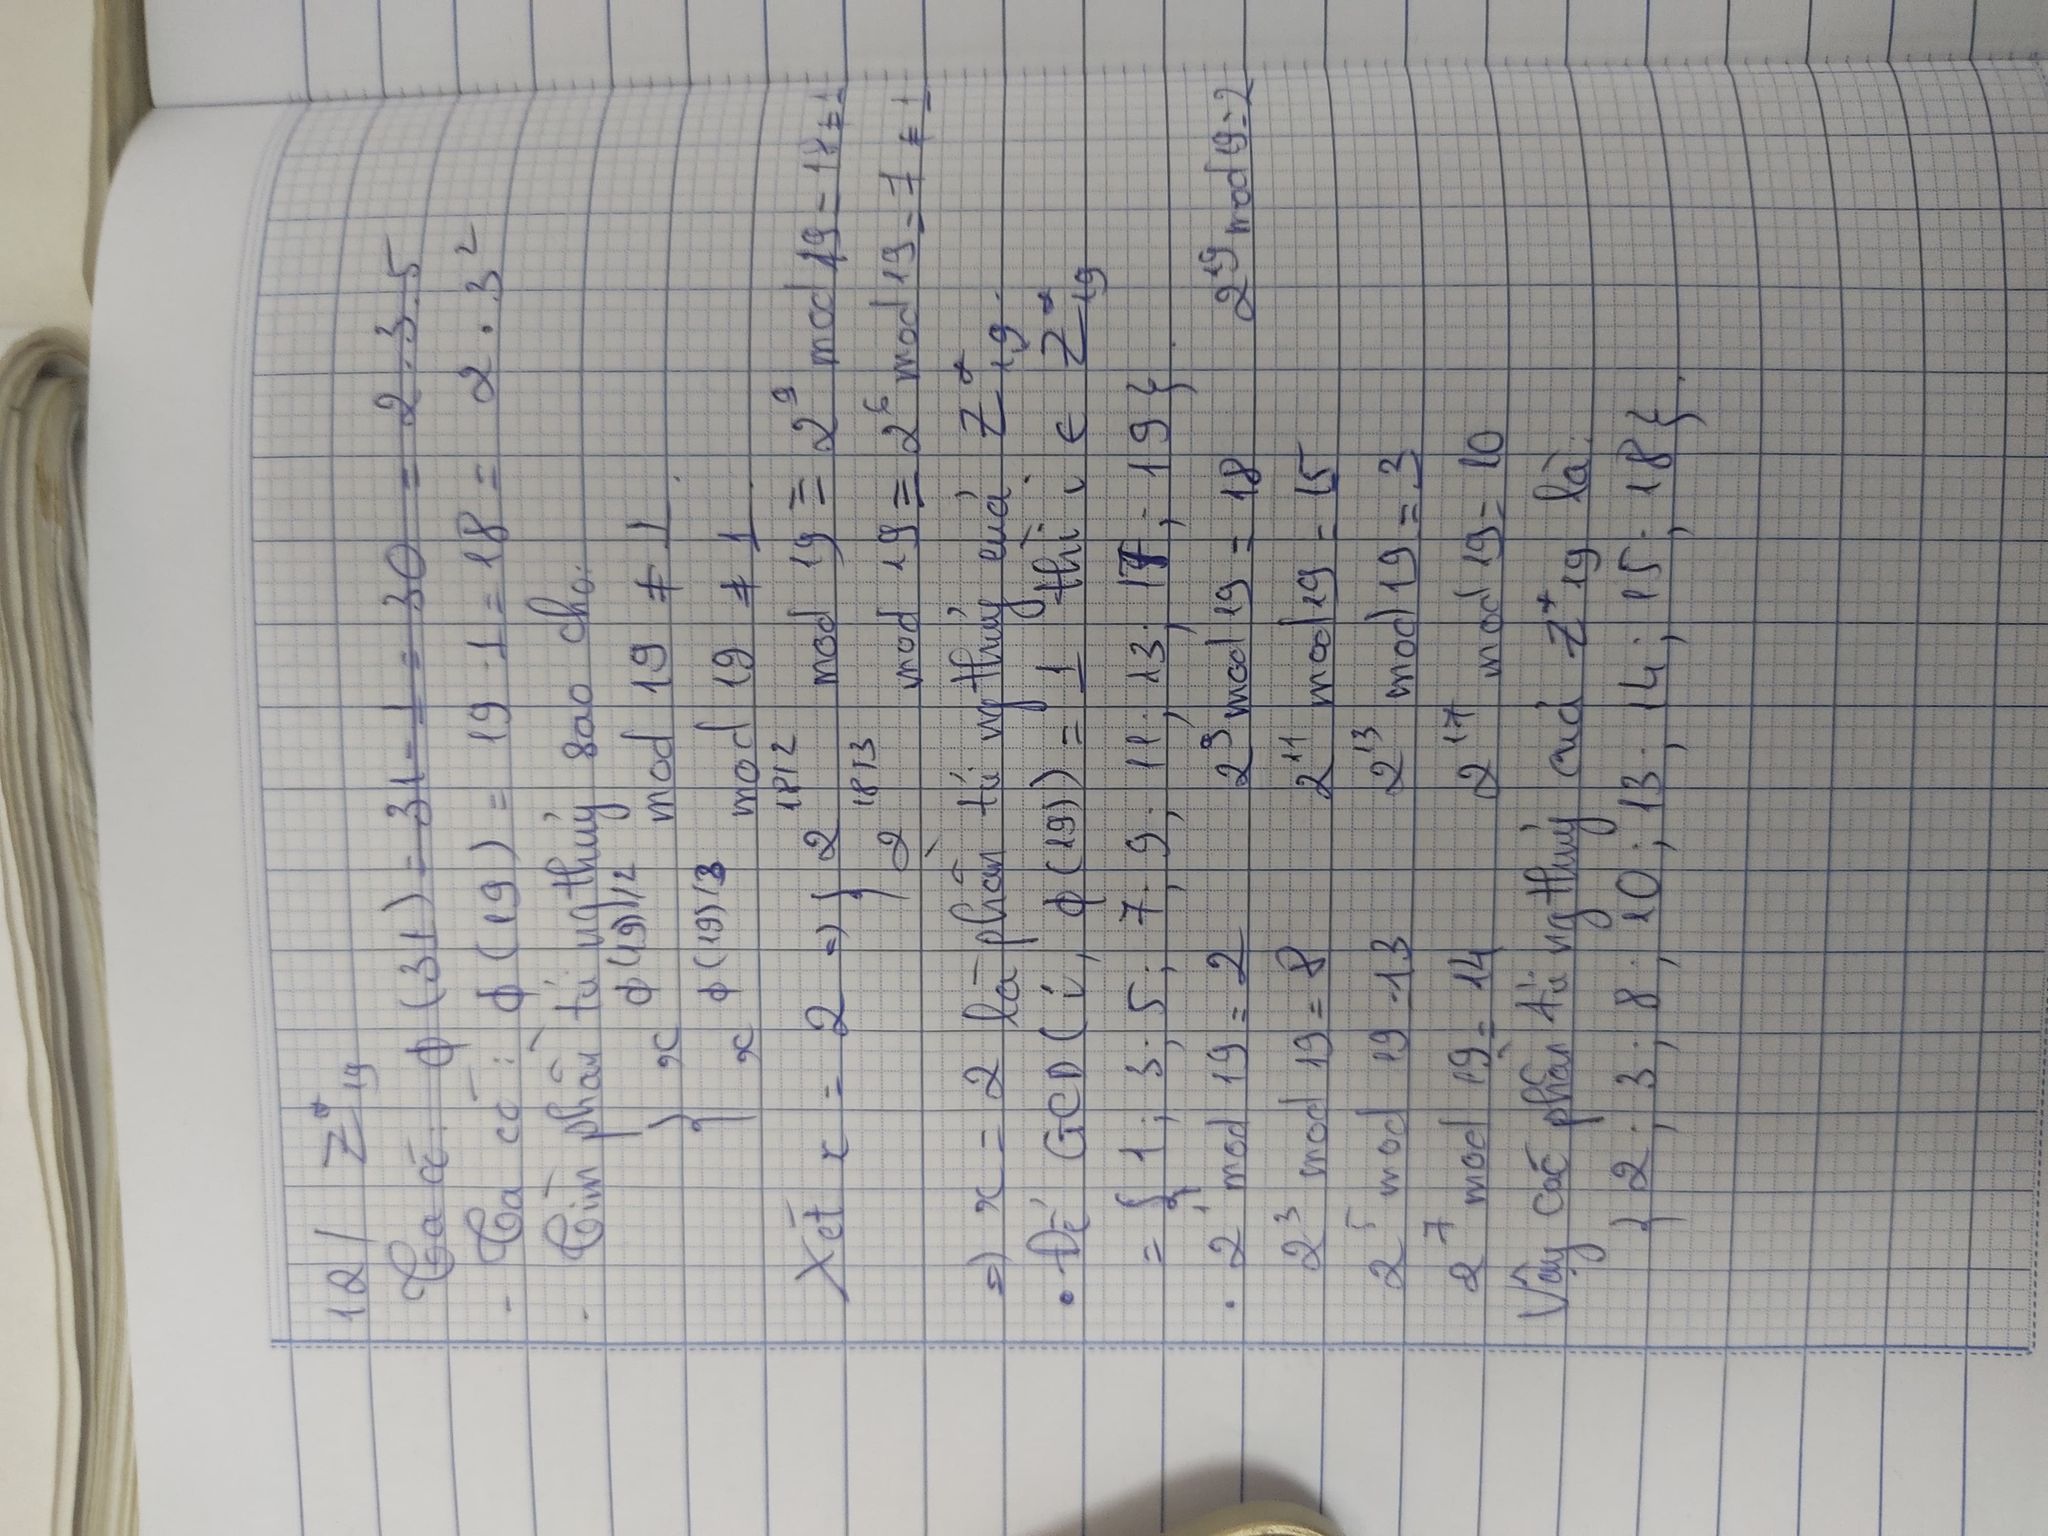 12/ Z*19
Ta có: ϕ(31) = 31-1 = 30 = 2.3.5
- Ta có: ϕ(19) = 19-1 = 18 = 2.3²
- Tìm phần tử ng thủy sao cho.
{ x^ϕ(19)/2 mod 19 ≠ 1.
{ x^ϕ(19)/3 mod 19 ≠ 1.
Xét x = 2 => { 2^18/2 mod 19 = 2^9 mod 19 = 18 ≠ 1
{ 2^18/3 mod 19 = 2^6 mod 19 = 7 ≠ 1
=> x = 2 là phần tử ng thủy của Z*19.
• Để GCD(i, ϕ(19)) = 1 thì i ∈ Z*19
= { 1; 3; 5; 7; 9; 11; 13; 17; 19 }.
• 2^1 mod 19 = 2 2^9 mod 19 = 18 2^19 mod 19 = 2
2^3 mod 19 = 8 2^11 mod 19 = 15
2^5 mod 19 = 13 2^13 mod 19 = 3
2^7 mod 19 = 14 2^17 mod 19 = 10
Vậy các phần tử ng thủy của Z*19 là.
{ 2; 3; 8; 10; 13; 14; 15; 18 }.